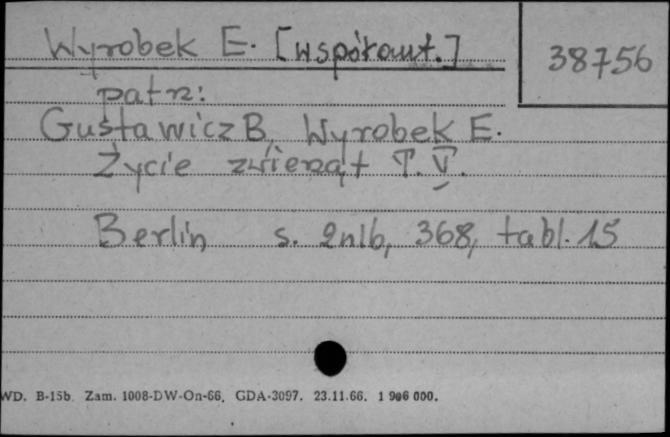 Wyrobek E. [współaut.]
38756
patrz:
Gustawicz B, Wyrobek E.
Życie zwierząt T. V.
Berlin s. 2nlb, 368, tabl. 15
WD. B-15b. Zam. 1008-DW-On-66. GDA-3097. 23.11.66. 1 906 000.